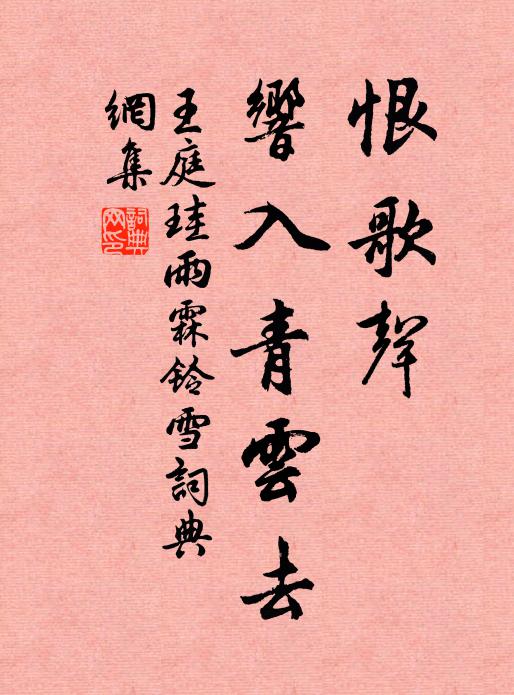 恨歌聲
響入青雲去
王庭珪雨霖鈴雪詞典
網集
詞典網印